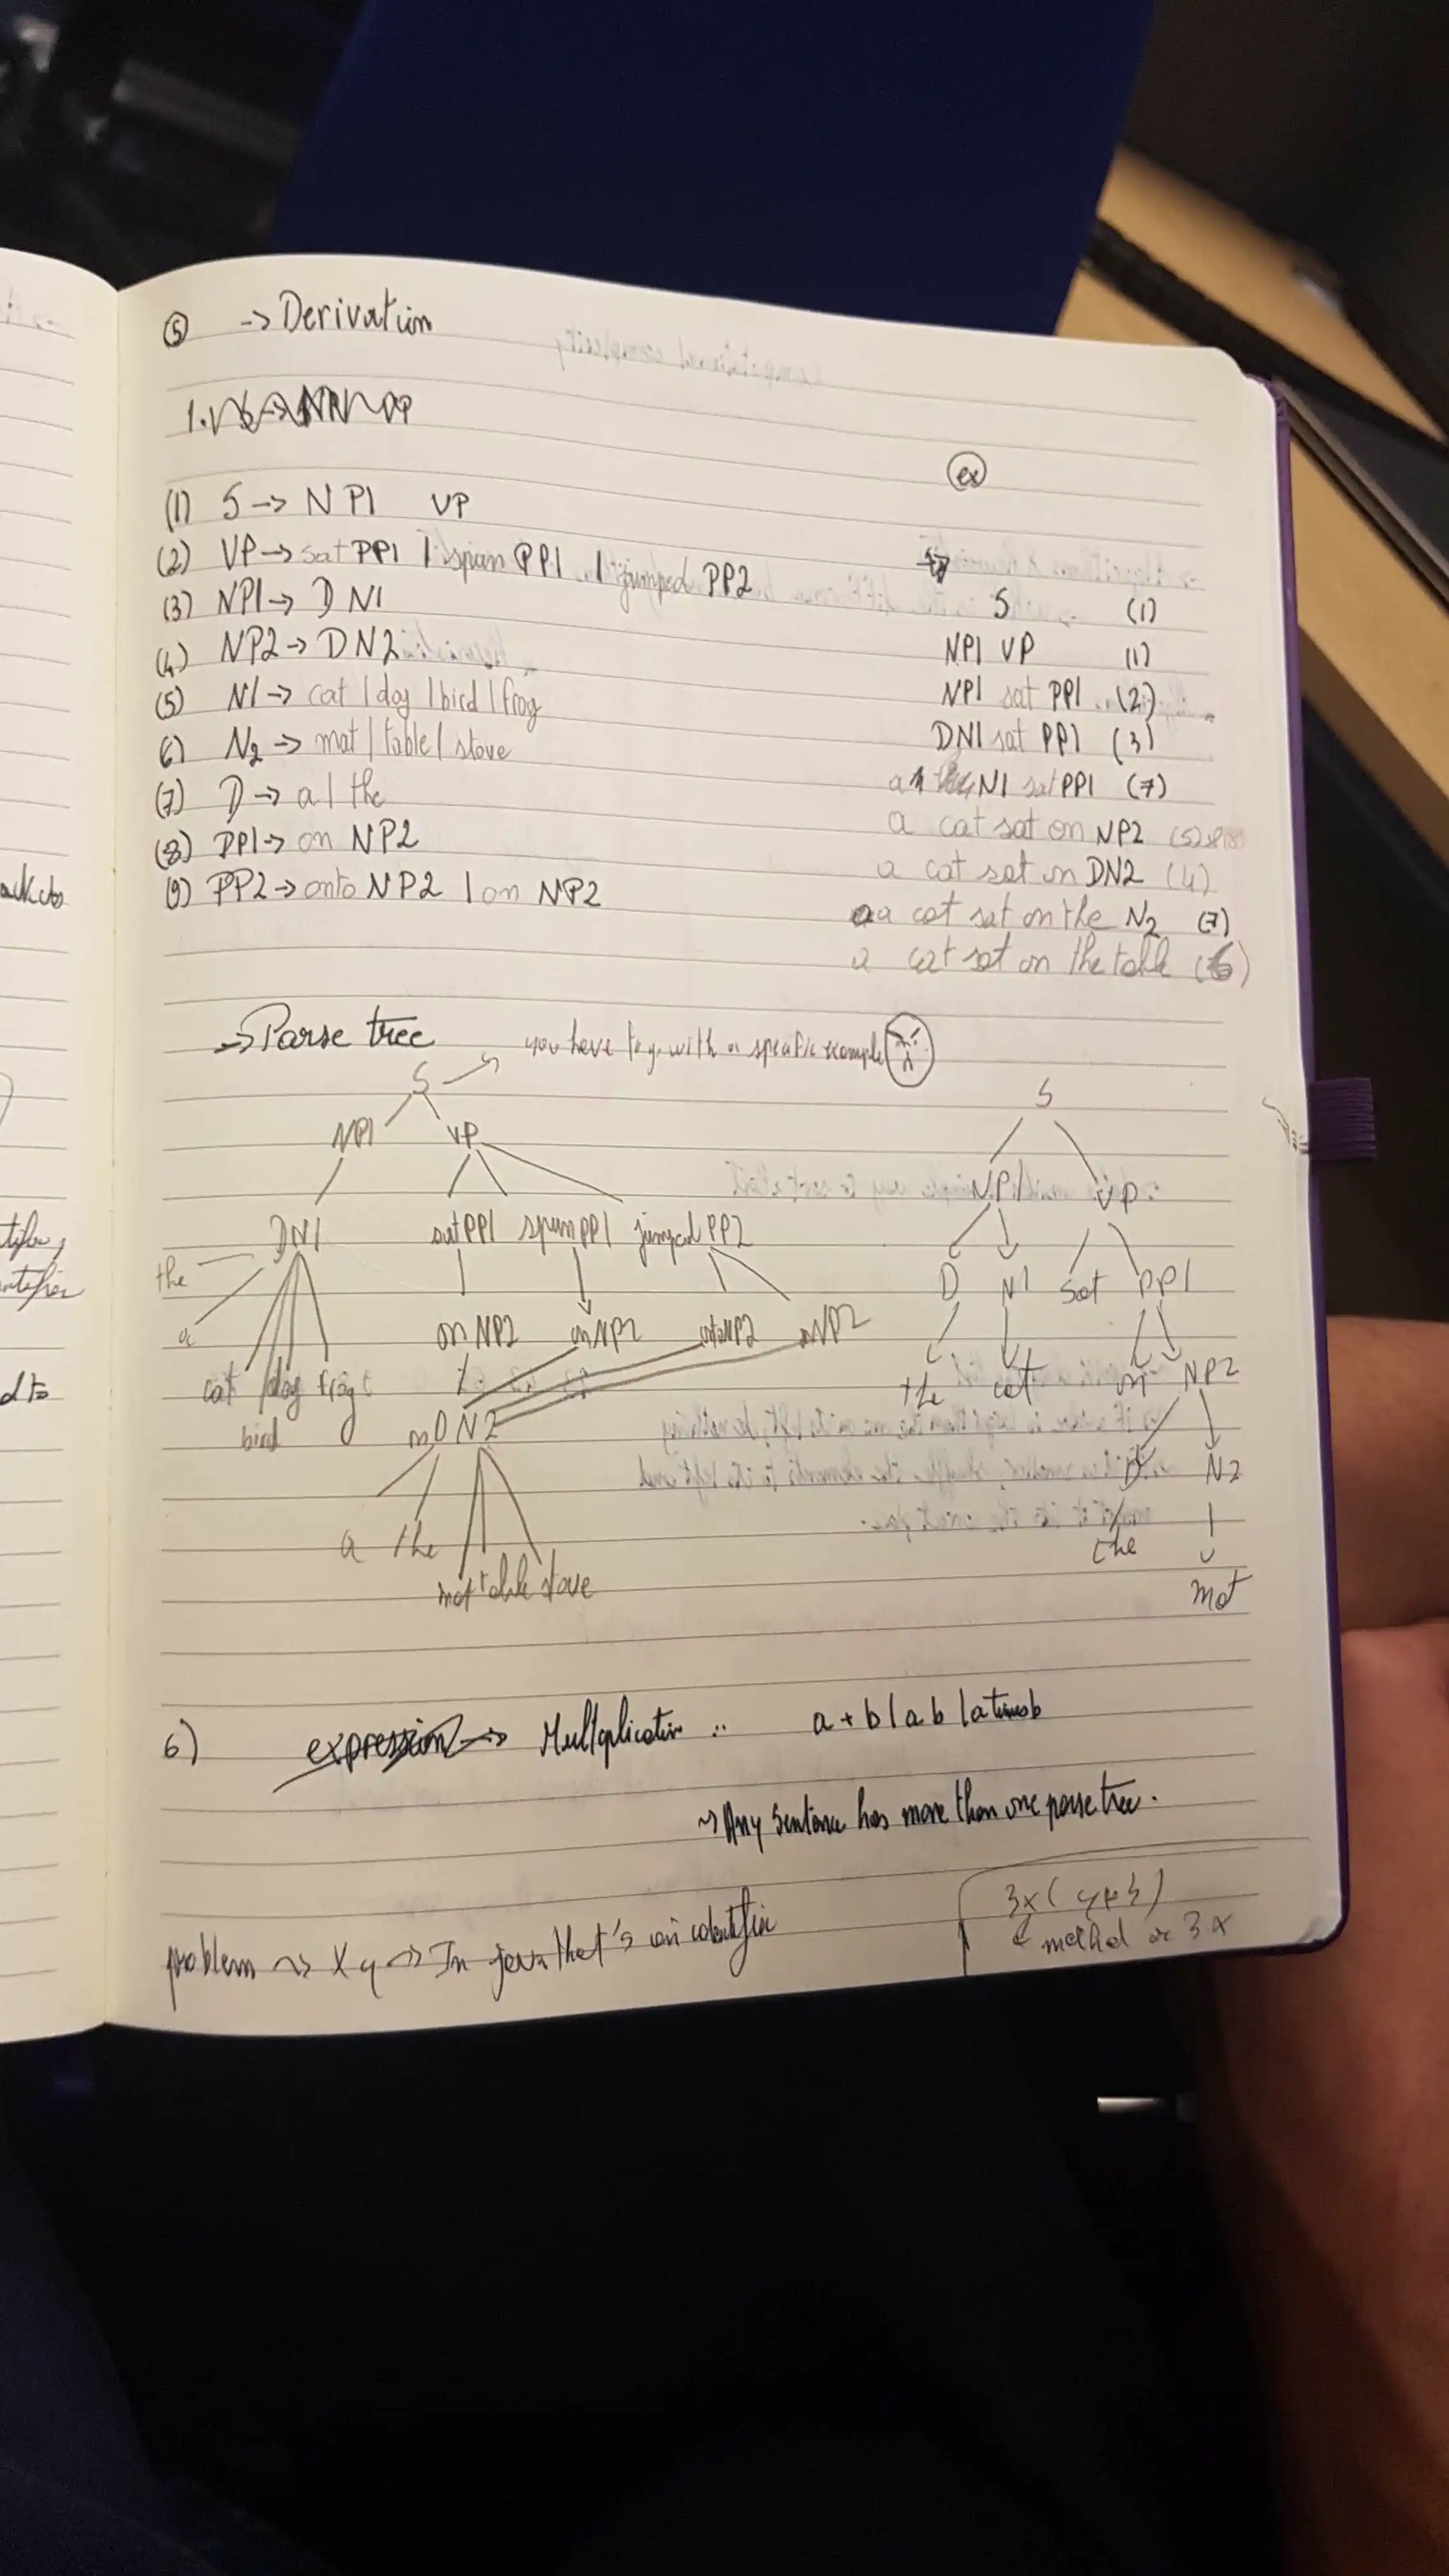 ⑤ -> Derivation
(1) S -> NP1 VP
(2) VP -> sat PP1 | span PP1 | jumped PP2
(3) NP1 -> D N1
(4) NP2 -> D N2
(5) N1 -> cat | dog | bird | frog
6) N2 -> mat | table | stove
(7) D -> a | the
(8) PP1 -> on NP2
(9) PP2 -> onto NP2 | on NP2
ex
S (1)
NP1 VP (1)
NP1 sat PP1 (2)
DN1 sat PP1 (3)
a N1 sat PP1 (7)
a cat sat on NP2 (5)
a cat sat on DN2 (4)
a cat sat on the N2 (7)
a cat sat on the table (6)
-> Parse tree
you have to go with a specific example
S
NP1 VP
DN1 sat PP1 spun PP1 jumped PP2
the
a
on NP2 on NP2 onto NP2 on NP2
cat dog frog
bird
DN2
a the
mat table stove
S
NP1 VP
D N1 sat PP1
the cat on NP2
D N2
the
mat
6) expression -> Multiplication :: a * b | a b | a times b
-> Any sentence has more than one parse tree.
problem -> xy -> In java that's an identifier
method or 3x